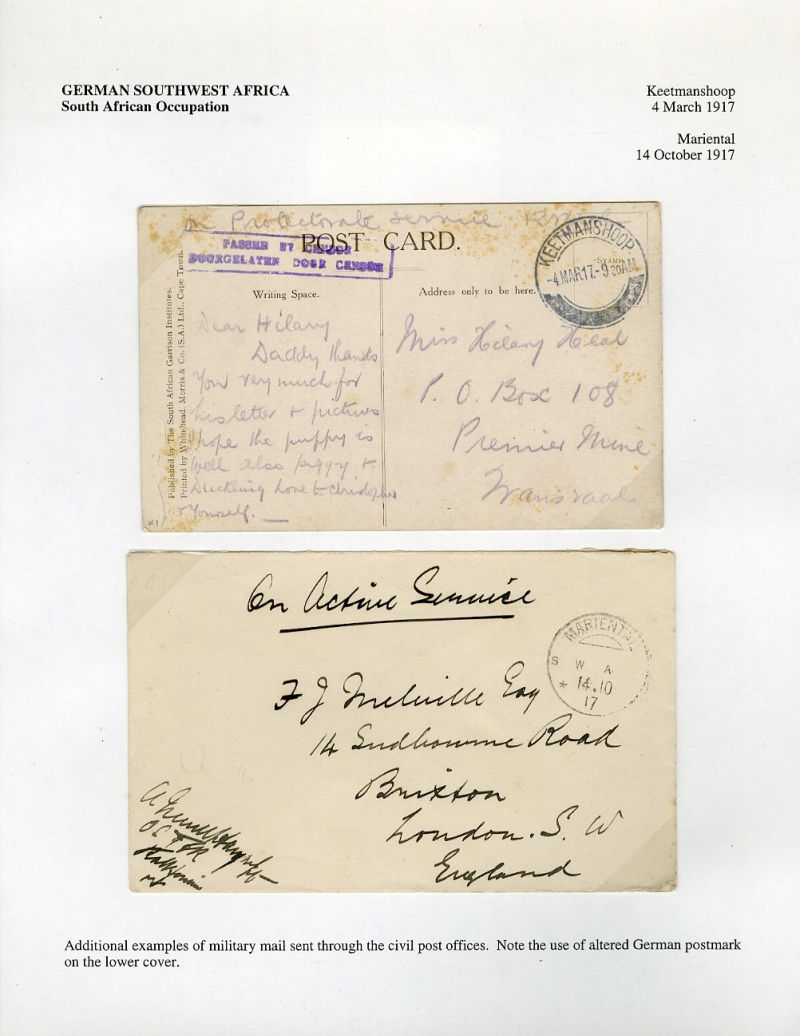 GERMAN SOUTHWEST AFRICA
South African Occupation
Keetmanshoop
4 March 1917
Mariental
14 October 1917
on Protectorate service
POST CARD.
PASSED BY CENSOR
DOORGELATEN DOOR CENSOR
KEETMANSHOOP
-4 MAR 17.-9 30AM
STAMP
Writing Space.
Address only to be here.
Published by The South African Garrison Institutes.
Printed by Whitehead, Morris & Co. (S.A.) Ltd., Cape Town.
Dear Hilary
Daddy thanks
you very much for
his letter & pictures
hope the puppy is
well also piggy &
Duckling love to Christopher
& Yourself.
K1
Miss Hilary Heal
P. O. Box 108
Premier Mine
Transvaal
On Active Service
MARIENTAL
S W A
* 14.10
17
F J Melville Esq
14 Sudbourne Road
Brixton
London. S. W
England
Additional examples of military mail sent through the civil post offices. Note the use of altered German postmark
on the lower cover.